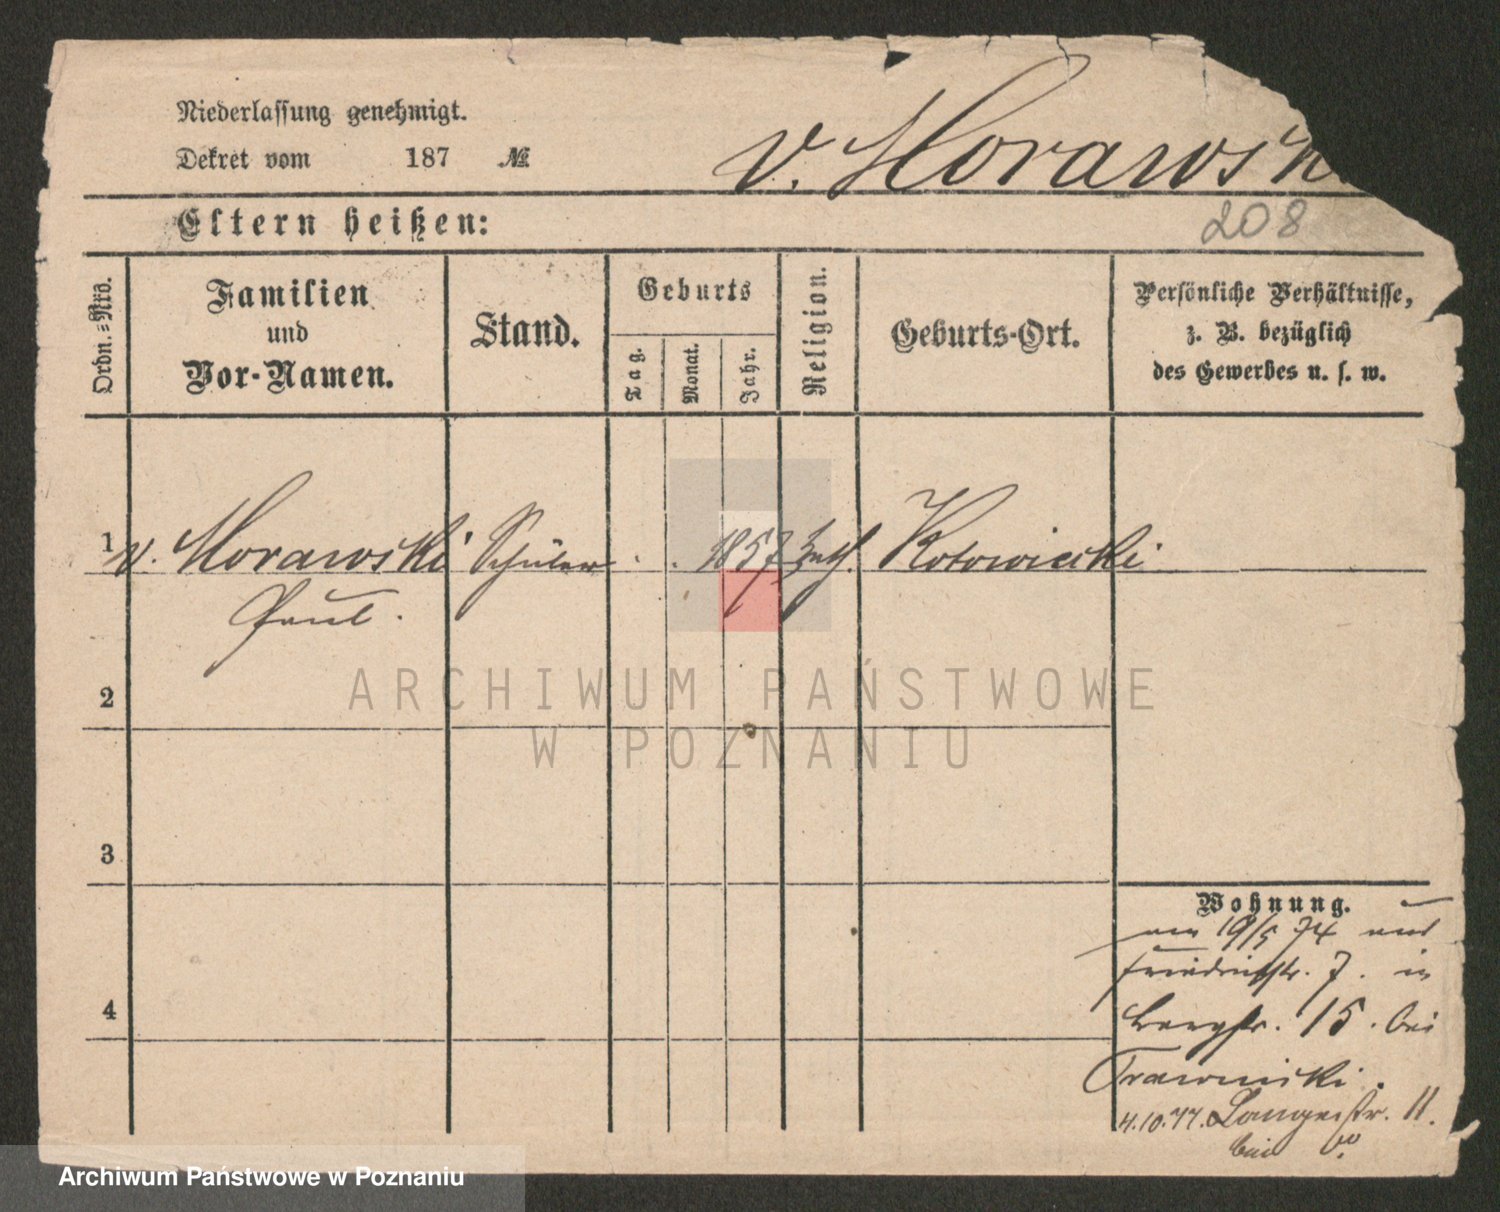 Niederlassung genehmigt.
Dekret vom 187 №
v. Morawsk
208
Eltern heißen:
Ordn.=Nro.
Familien
und
Vor-Namen.
Stand.
Geburts
Tag.
Monat.
Jahr.
Religion.
Geburts-Ort.
Persönliche Verhältnisse,
z. B. bezüglich
des Gewerbes u. s. w.
1 v. Morawski Schüler 1857 kath. Kotowiecki
Paul.
2
3
4
Wohnung.
am 19/5 74 aus
Friedrichstr. 7. in
Bergstr. 15. bei
Trawinski.
4.10.77. Langestr. 11.
bei
ARCHIWUM PAŃSTWOWE
W POZNANIU
Archiwum Państwowe w Poznaniu